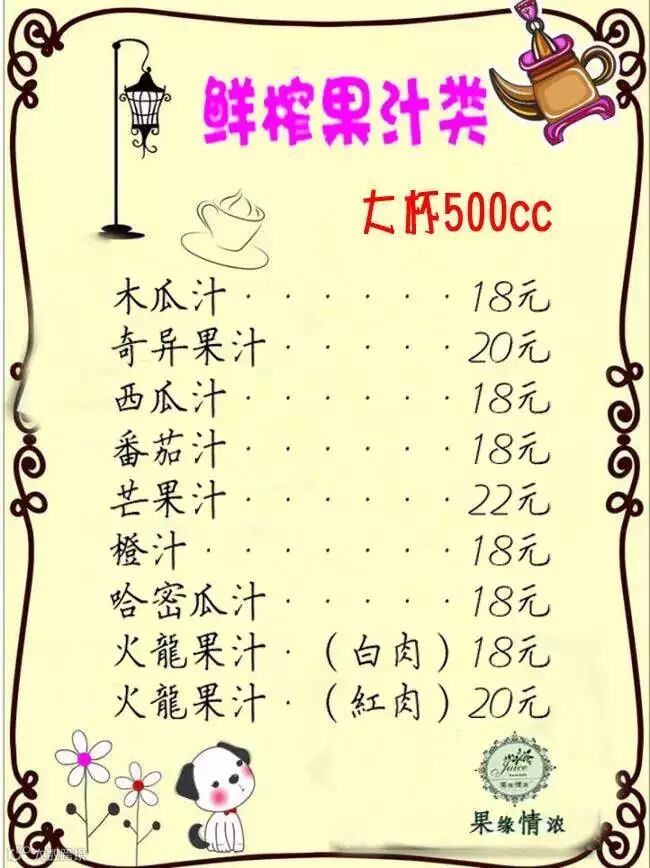 鲜榨果汁类
大杯500cc
木瓜汁······18元
奇异果汁·····20元
西瓜汁······18元
番茄汁······18元
芒果汁······22元
橙汁·······18元
哈密瓜汁·····18元
火龍果汁·（白肉）18元
火龍果汁·（紅肉）20元
Juice
果缘情浓
果缘情浓
大数跨境